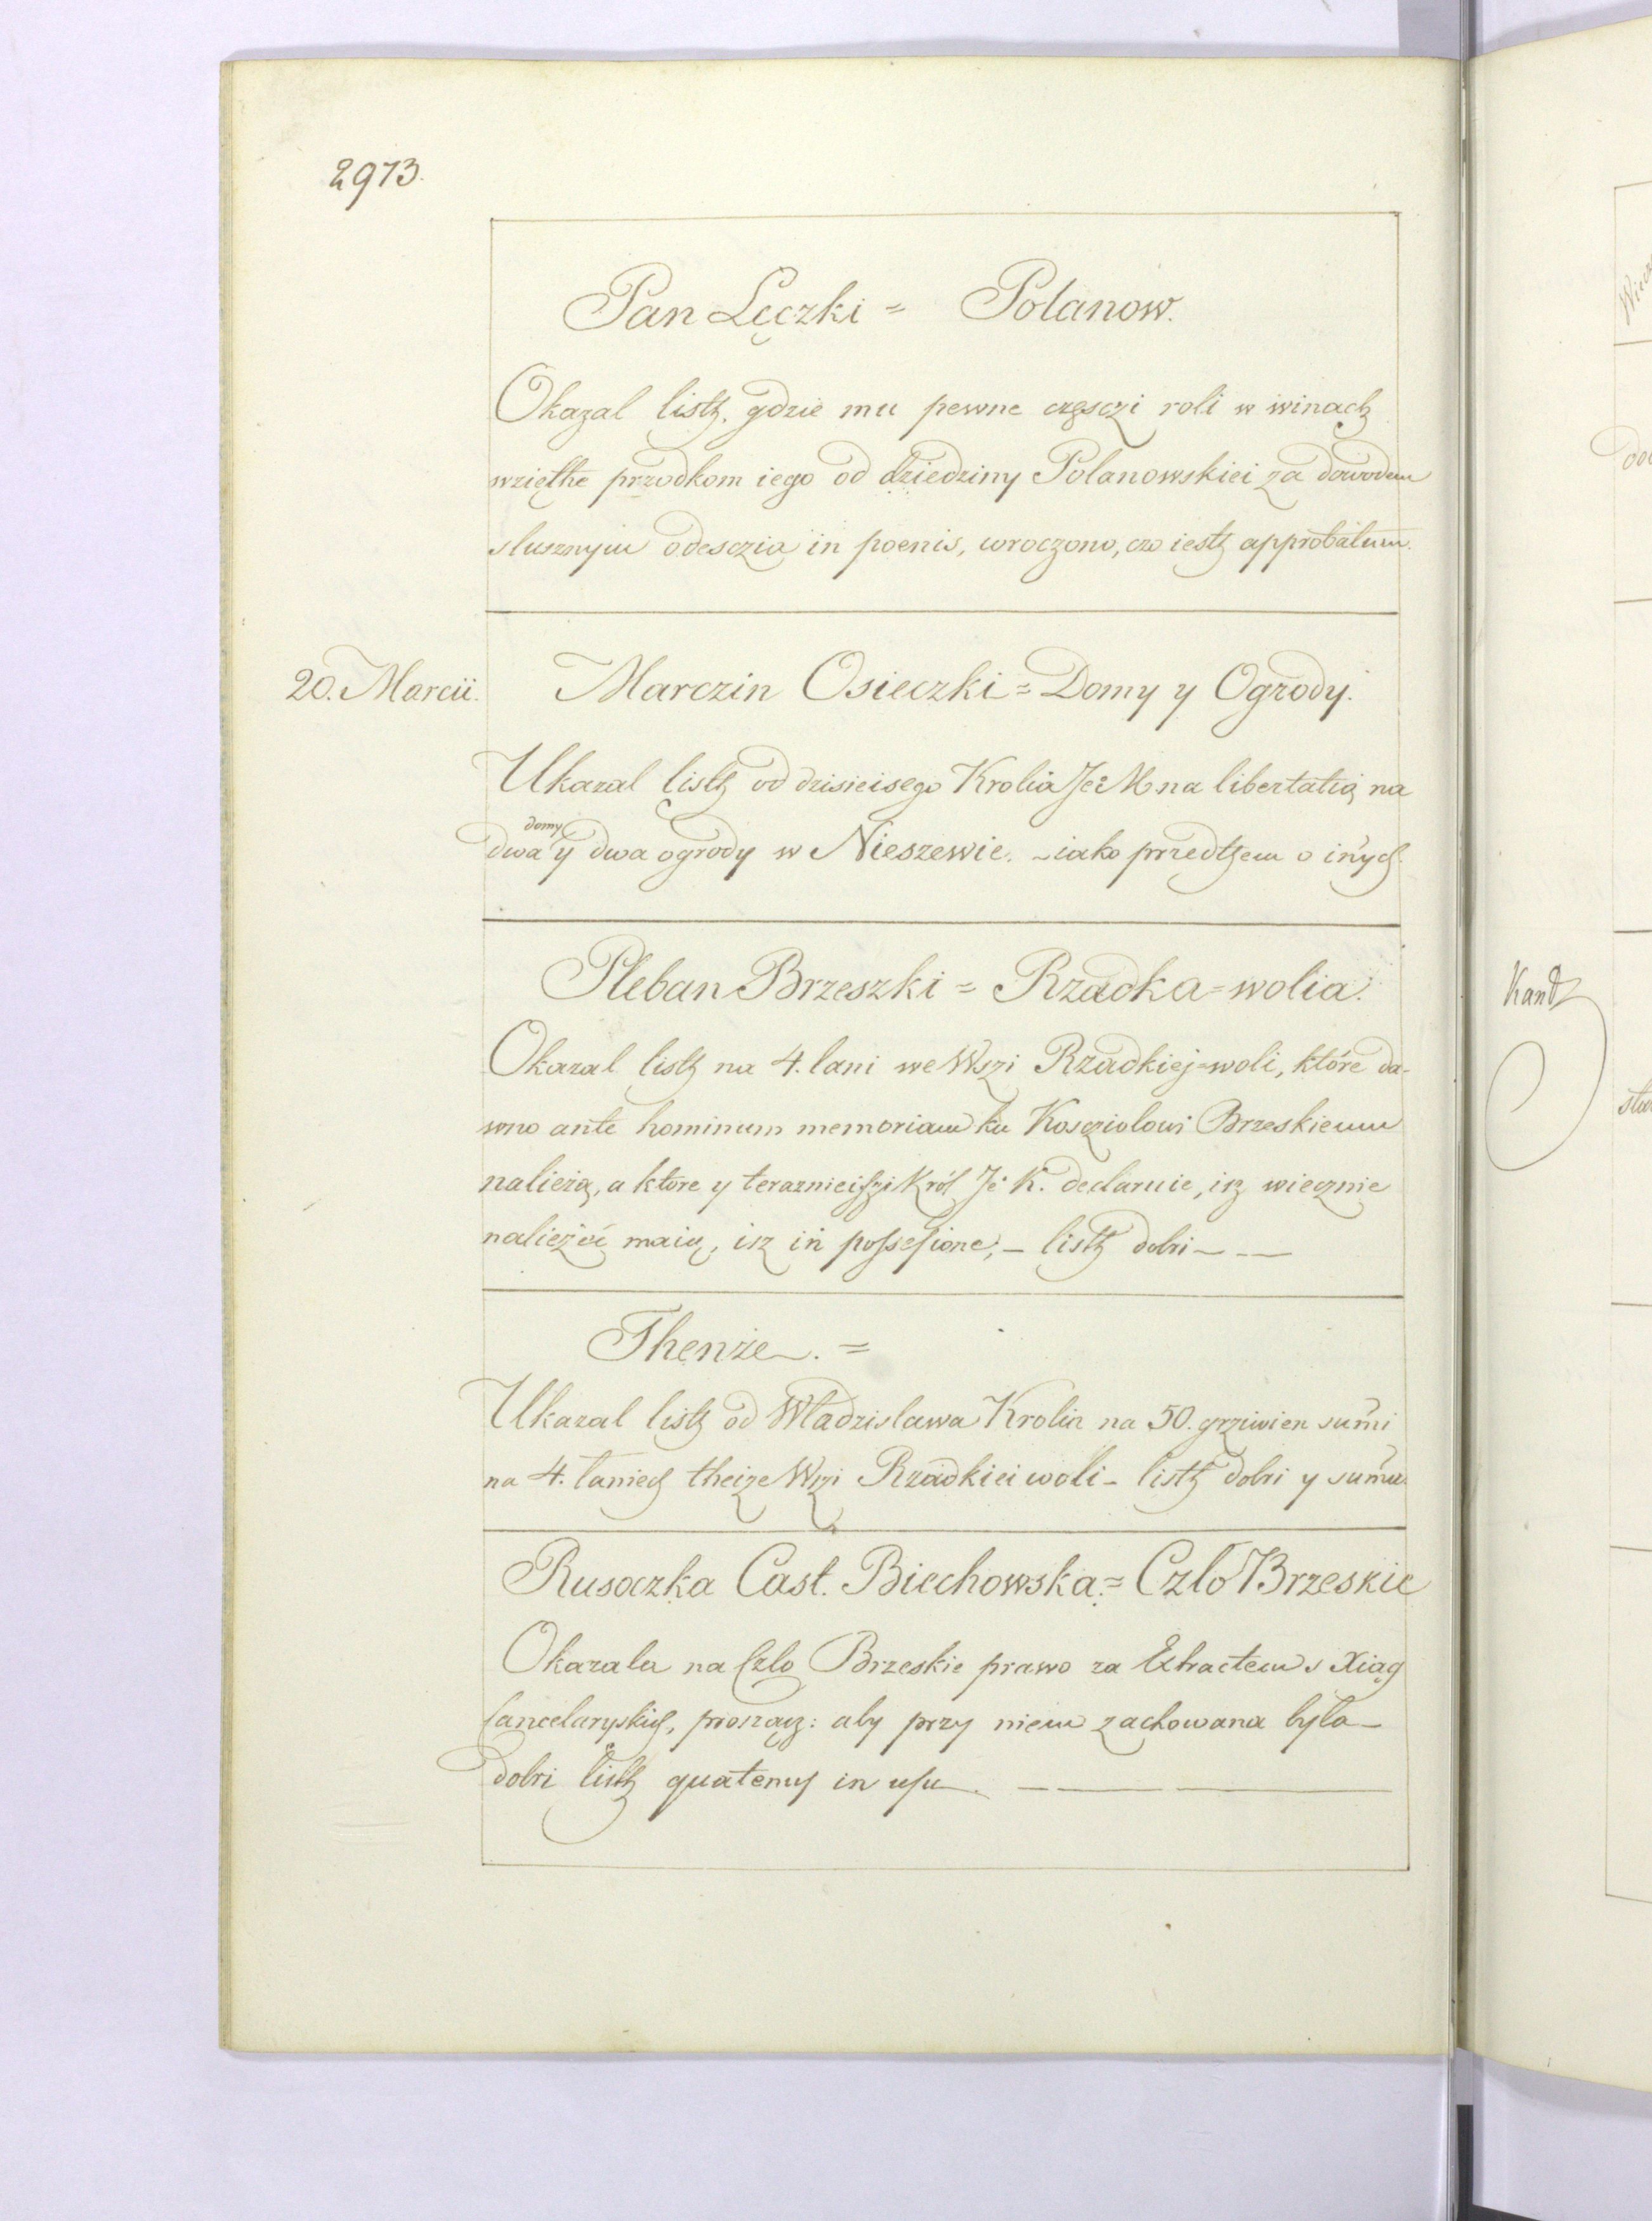 2973.
Pan Lęczki = Polanow.
Okazal listh, gdzie mu pewne częsczi roli w winach
wzięthe przodkom iego od dziedziny Polanowskiei za dowodem
slusznym odesczia in poenis, wroczono, czo iesth approbatum.
20. Marcii.
Marczin Osieczki = Domy y Ogrody.
Ukazal listh od dzisieisego Krolia Je: M na libertatią na
domy
dwa y dwa ogrody w Nieszewie. – iako przedthem o inych.
Pleban Brzeszki = Rzadka = wolia.
Okazal listh na 4. lani we Wszi Rzadkiej = woli, które da-
wno ante hominum memoriam ku Koscziolowi Brzeskiemu
nalieżą, a ktore y teraznieiszi Król Je K. declaruie, isz wiecznie
nalieżéć maią, isz in possesione, – listh dobri – – —
Thenże. =
Ukazal listh od Wladzislawa Krolia na 50. grziwien sumi
na 4. laniech theize Wszi Rzadkiei woli – listh dobri y suma.
Rusoczka Cast. Biechowska = Czlo Brzeskie
Okazala na Czlo Brzeskie prawo za Extractem s Xiąg
Cancelaryskich, prosząc: aby przy niem zachowana była –
dobri listh quatenus in usu. — — —
Kand